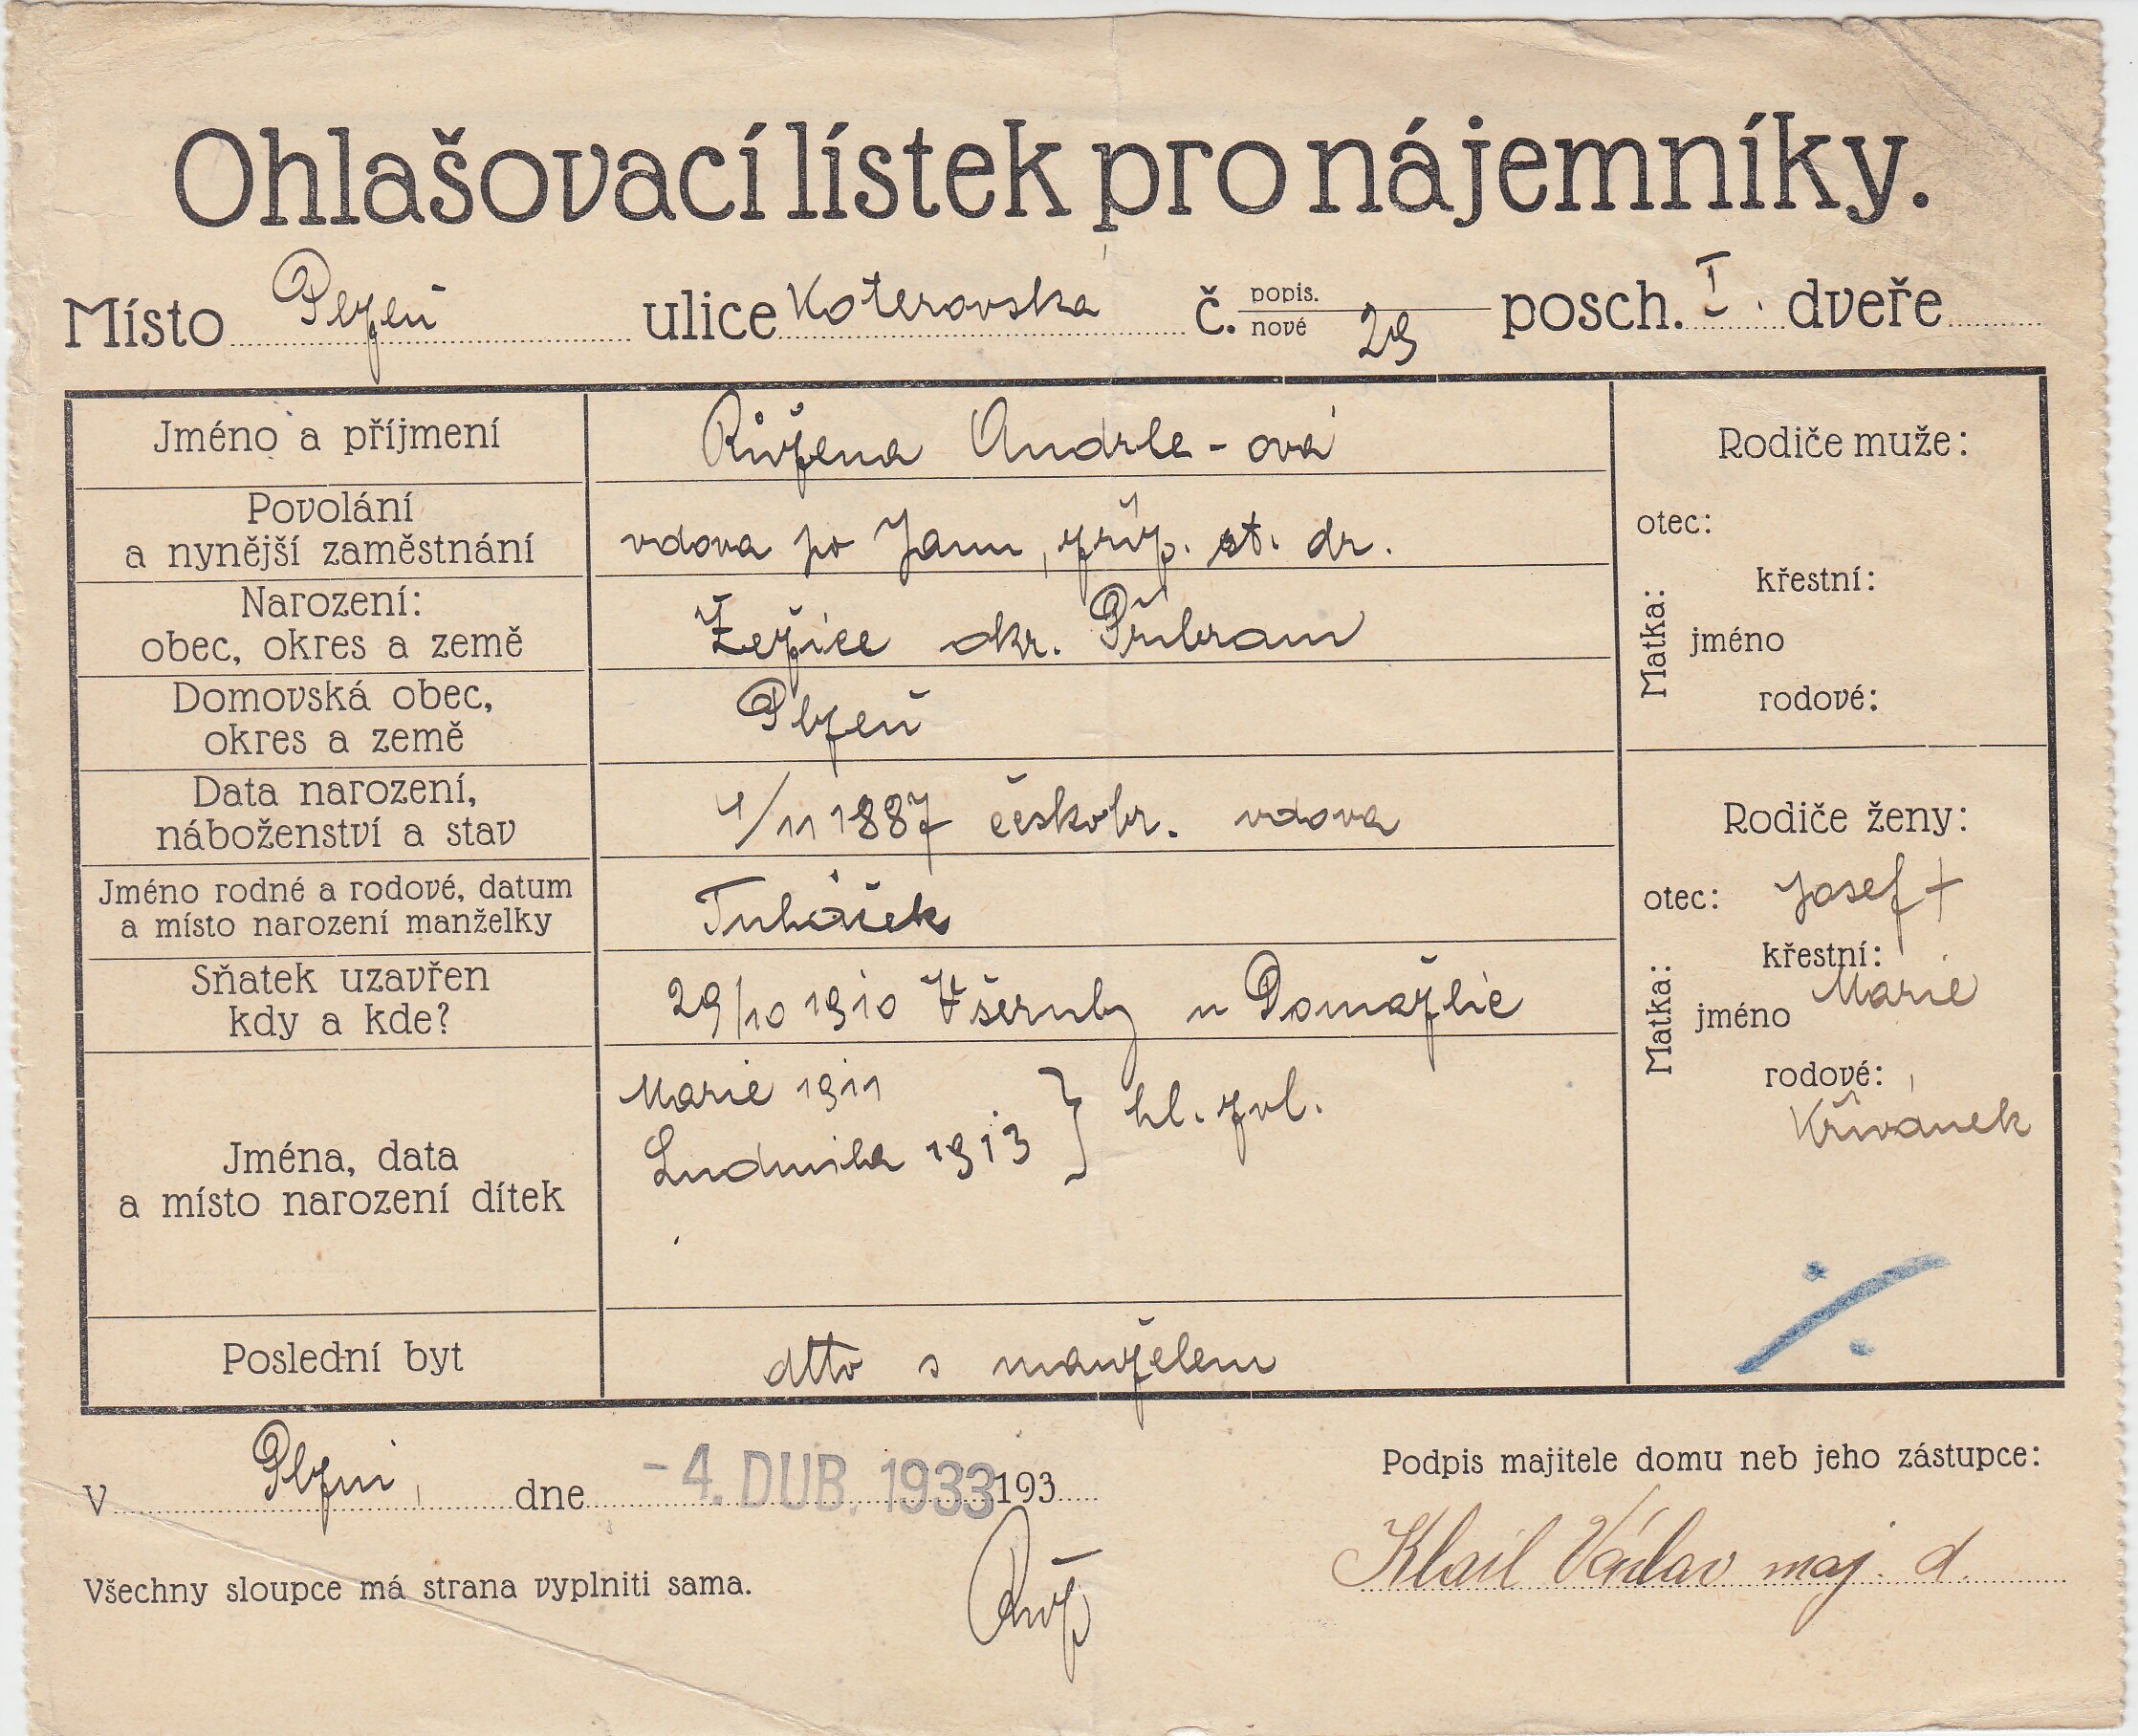 Ohlašovací lístek pro nájemníky.
Místo Plzeň ulice Koterovská č. popis. nové 29 posch. I. dveře
Jméno a příjmení Růžena Andrle-ová
Povolání
a nynější zaměstnání vdova po Janu, zříz. st. dr.
Narození:
obec, okres a země okr. Příbram
Domovská obec,
okres a země Plzeň
Data narození,
náboženství a stav 4/11 1887 českobr. vdova
Jméno rodné a rodové, datum
a místo narození manželky
Sňatek uzavřen
kdy a kde? 29/10 1910 Všeruby u Domažlic
Jména, data
a místo narození dítek
Marie 1911
Ludmila 1913 } hl. zvl.
Poslední byt dtto s manželem
Rodiče muže:
otec:
Matka:
křestní:
jméno
rodové:
Rodiče ženy:
otec: Josef +
Matka:
křestní:
jméno Marie
rodové:
Křivánek
V Plzni, dne -4. DUB. 1933 193
Podpis majitele domu neb jeho zástupce:
Klail Václav maj. d.
Všechny sloupce má strana vyplniti sama.